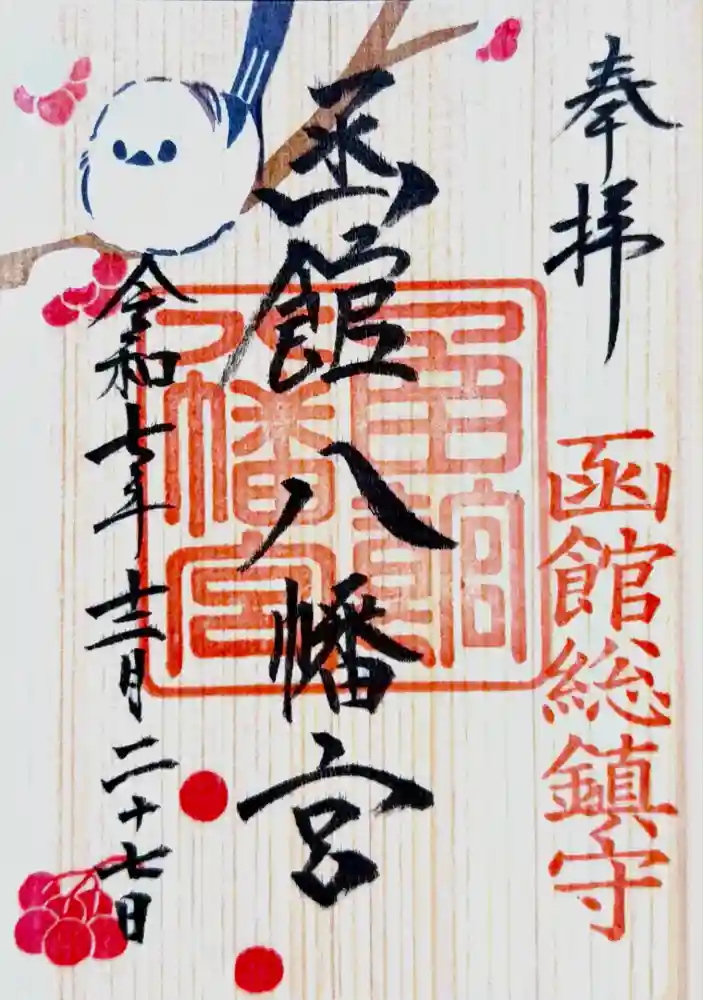 奉拝
函館総鎮守
函館八幡宮
函館
八幡宮
令和七年十二月二十七日